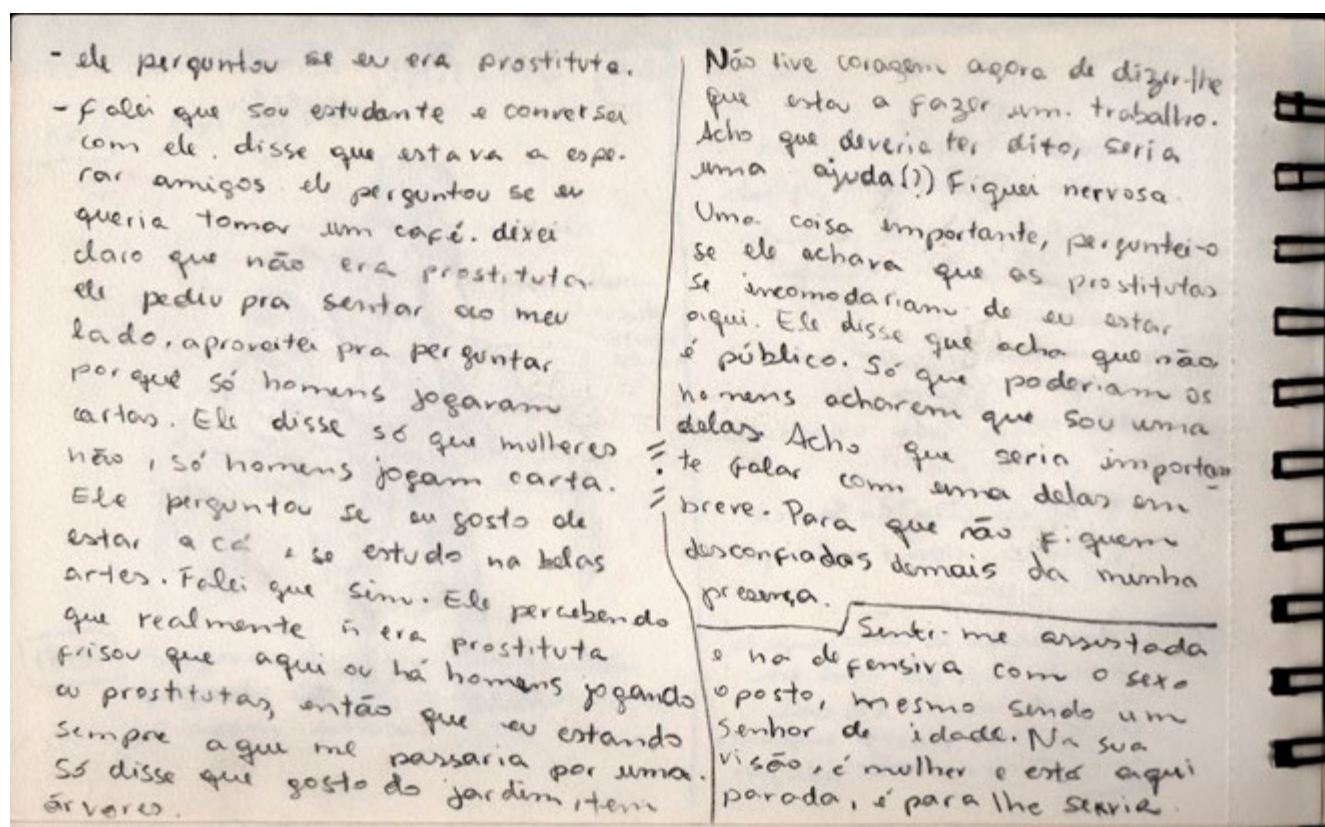 - ele perguntou se eu era prostituta.
- Falei que sou estudante e conversei
com ele. disse que estava a espe-
rar amigos ele perguntou se eu
queria tomar um café. dixei
claro que não era prostituta.
ele pediu pra sentar ao meu
lado, aproveitei pra perguntar
porquê só homens jogavam
cartas. Ele disse só que mulheres
não, só homens jogam carta.
Ele perguntou se eu gosto de
estar a cá e se estudo na belas
artes. Falei que sim. Ele percebendo
que realmente ñ era prostituta
frisou que aqui ou há homens jogando
ou prostitutas, então que eu estando
sempre aqui me passaria por uma.
Só disse que gosto do jardim, tem
árvores.
Não tive coragem agora de dizer-lhe
que estou a fazer um trabalho.
Acho que deveria ter dito, seria
uma ajuda(?) Fiquei nervosa.
Uma coisa importante, perguntei-o
se ele achava que as prostitutas
se incomodariam de eu estar
aqui. Ele disse que acha que não
é público. Só que poderiam os
homens acharem que sou uma
delas. Acho que seria importan-
te falar com uma delas em
breve. Para que não fiquem
desconfiadas demais da minha
presença.
Senti-me assustada
e na defensiva com o sexo
oposto, mesmo sendo um
senhor de idade. Na sua
visão, é mulher e está aqui
parada, é para lhe servir.